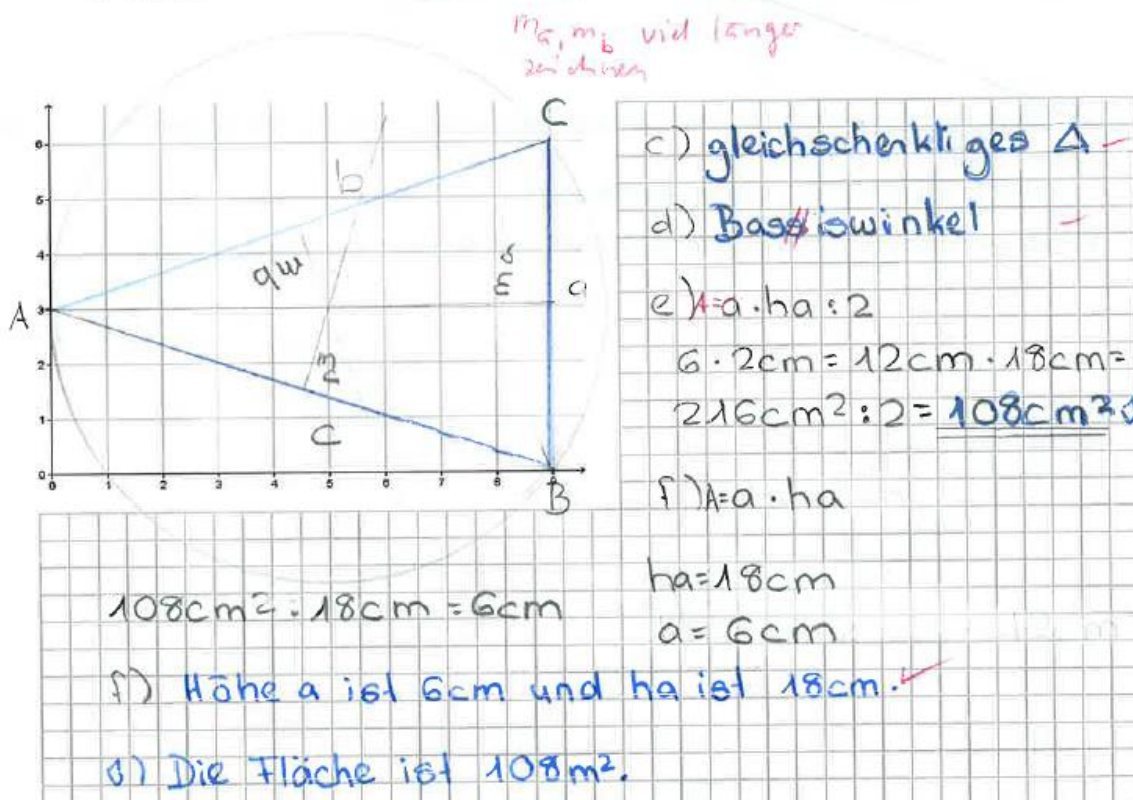 ma, mb viel länger
zeichnen
C
6
5
4
3
2
1
0
0 1 2 3 4 5 6 7 8 9
A
b
a
c
B
c) gleichschenkliges Δ
d) Bassiswinkel
e) A=a·ha:2
6·2cm=12cm·18cm=
216cm²:2=108cm²
f) A=a·ha
ha=18cm
a=6cm
108cm²:18cm=6cm
f) Höhe a ist 6cm und ha ist 18cm.
Die Fläche ist 108m².